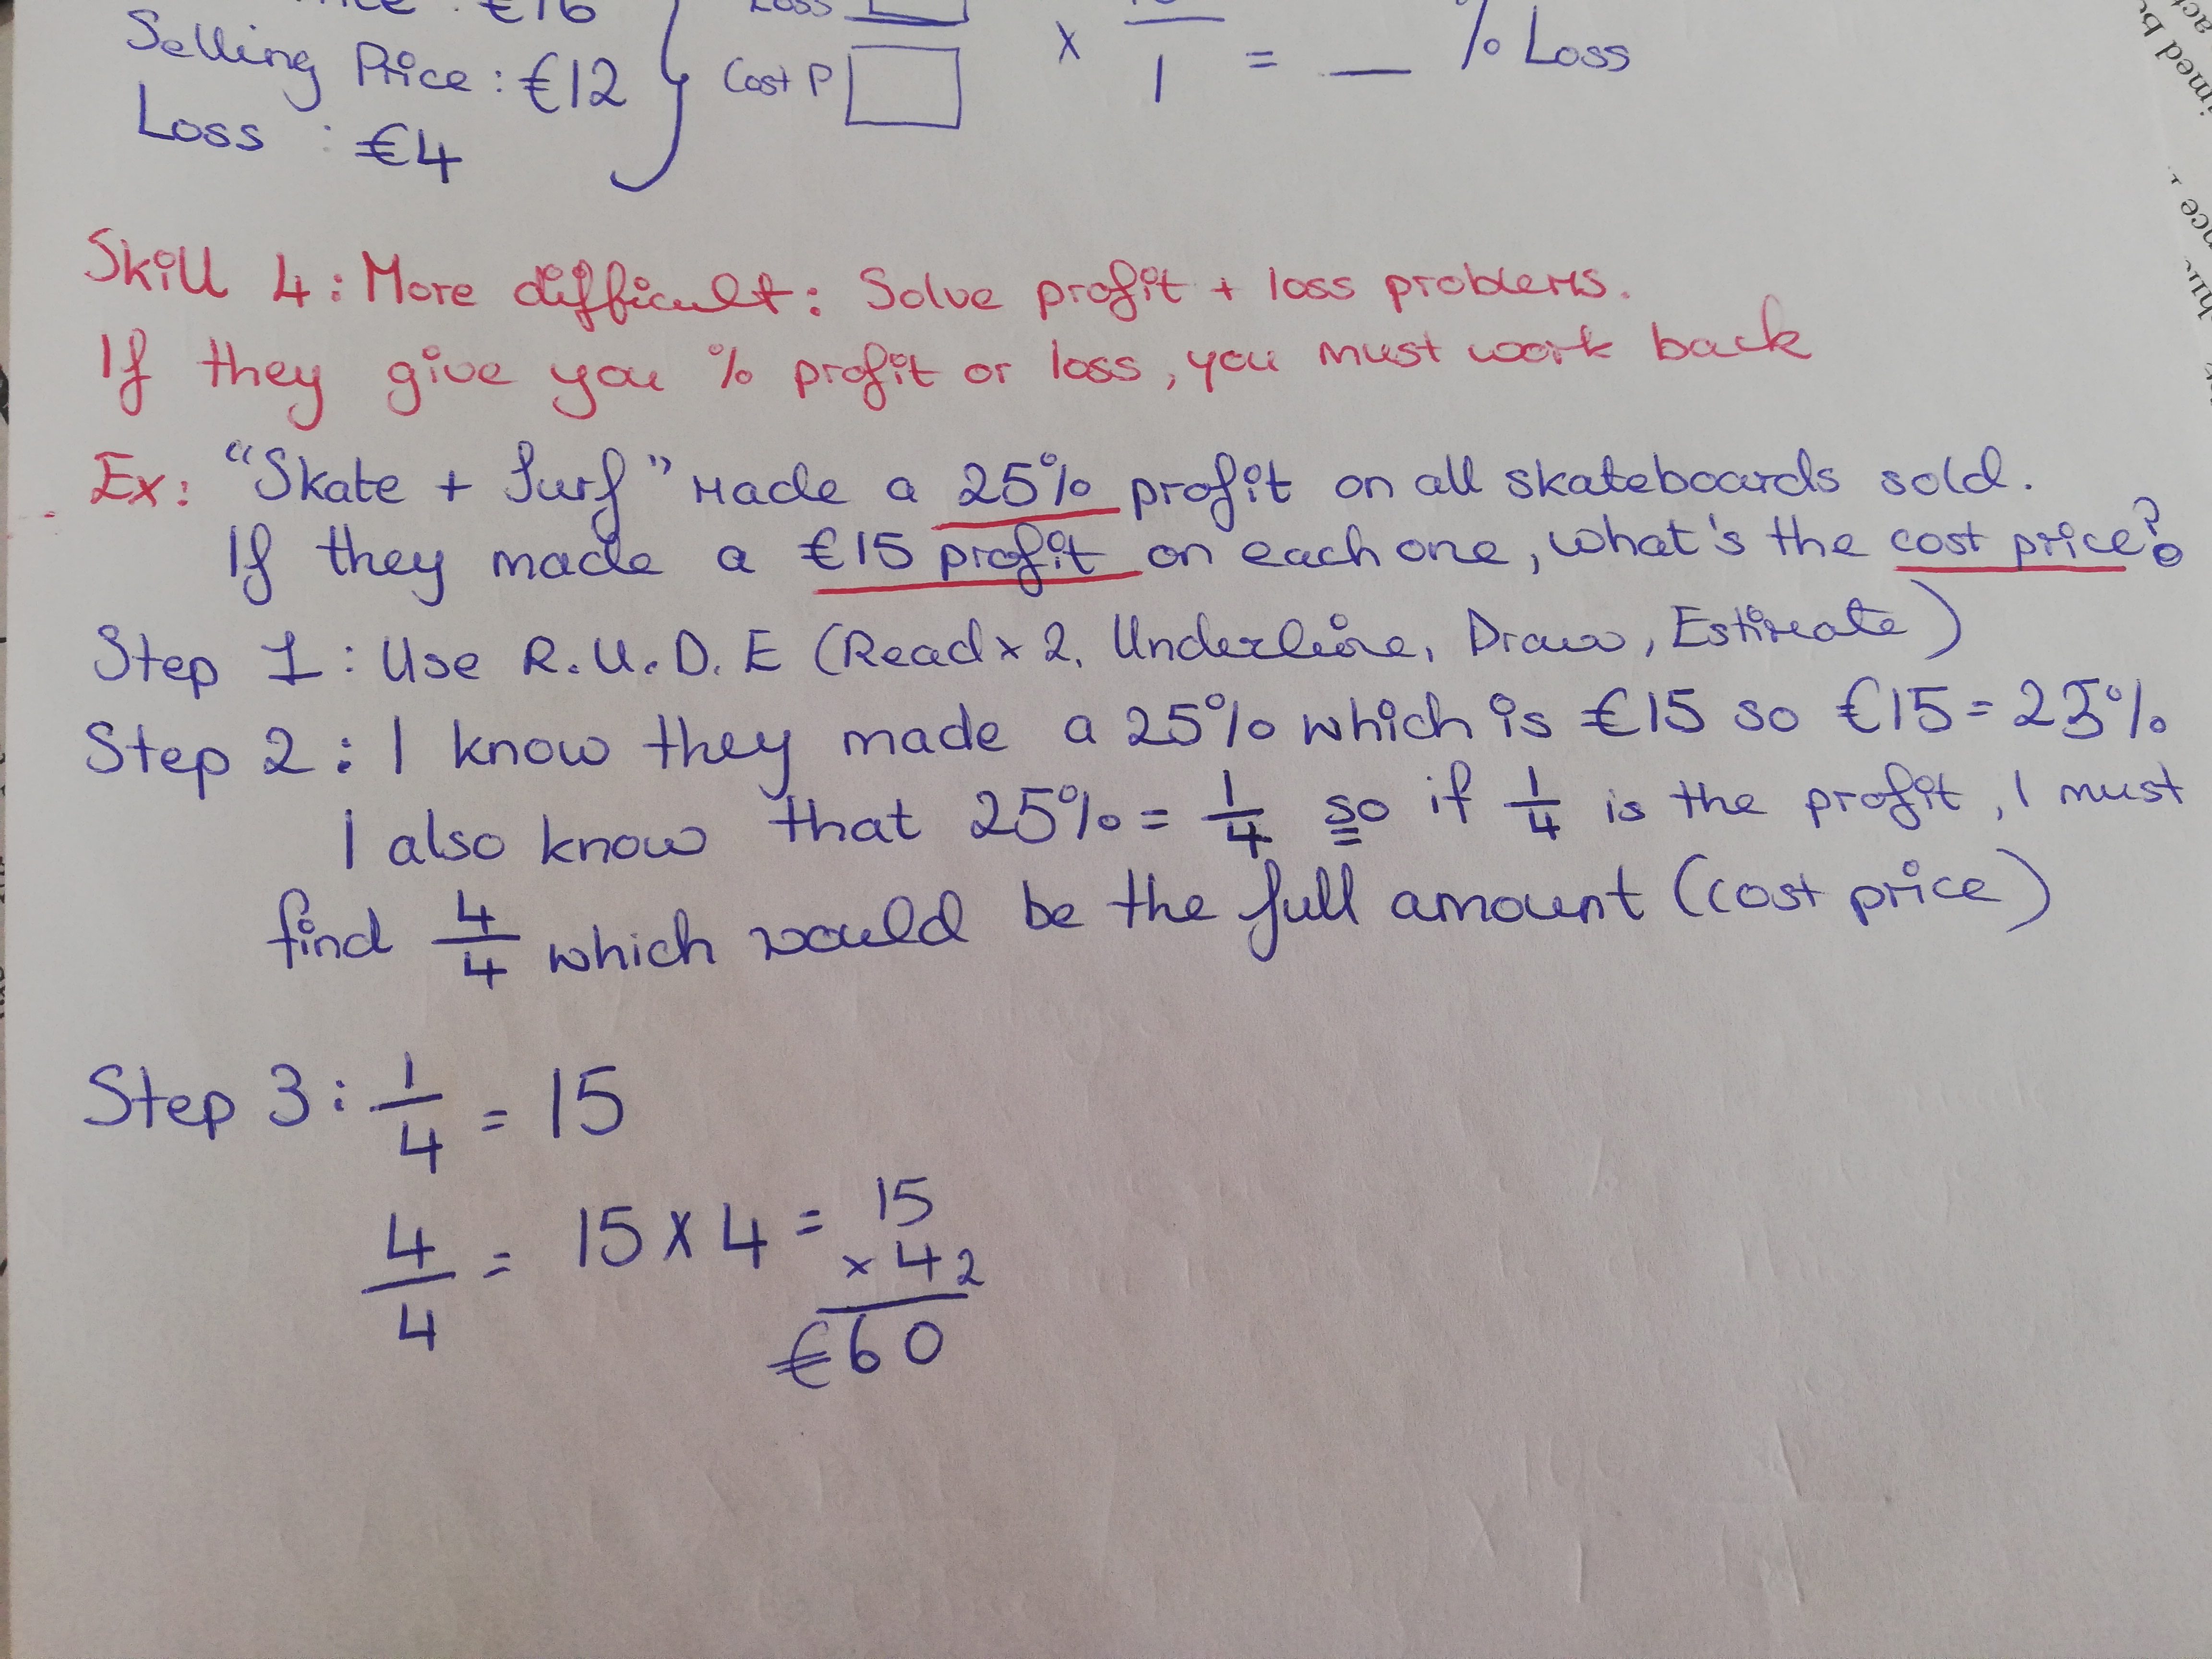 €16
Loss
Selling Price: €12
Cost P
x — 1 = __ % Loss
Loss : €4
Skill 4: More difficult: Solve profit + loss problems.
If they give you % profit or loss, you must work back
Ex: "Skate + Surf" made a 25% profit on all skateboards sold.
If they made a €15 profit on each one, what's the cost price?
Step 1: Use R.U.D.E (Read x 2, Underline, Draw, Estimate)
Step 2: I know they made a 25% which is €15 so €15 = 25%
I also know that 25% = 1/4 so if 1/4 is the profit, I must
find 4/4 which would be the full amount (cost price)
Step 3: 1/4 = 15
4/4 = 15 x 4 = 15
x 4 2
€60